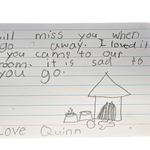 ill miss you when
go away. I loved it
you came to our
room. it is sad to
you go.
Love Quinn